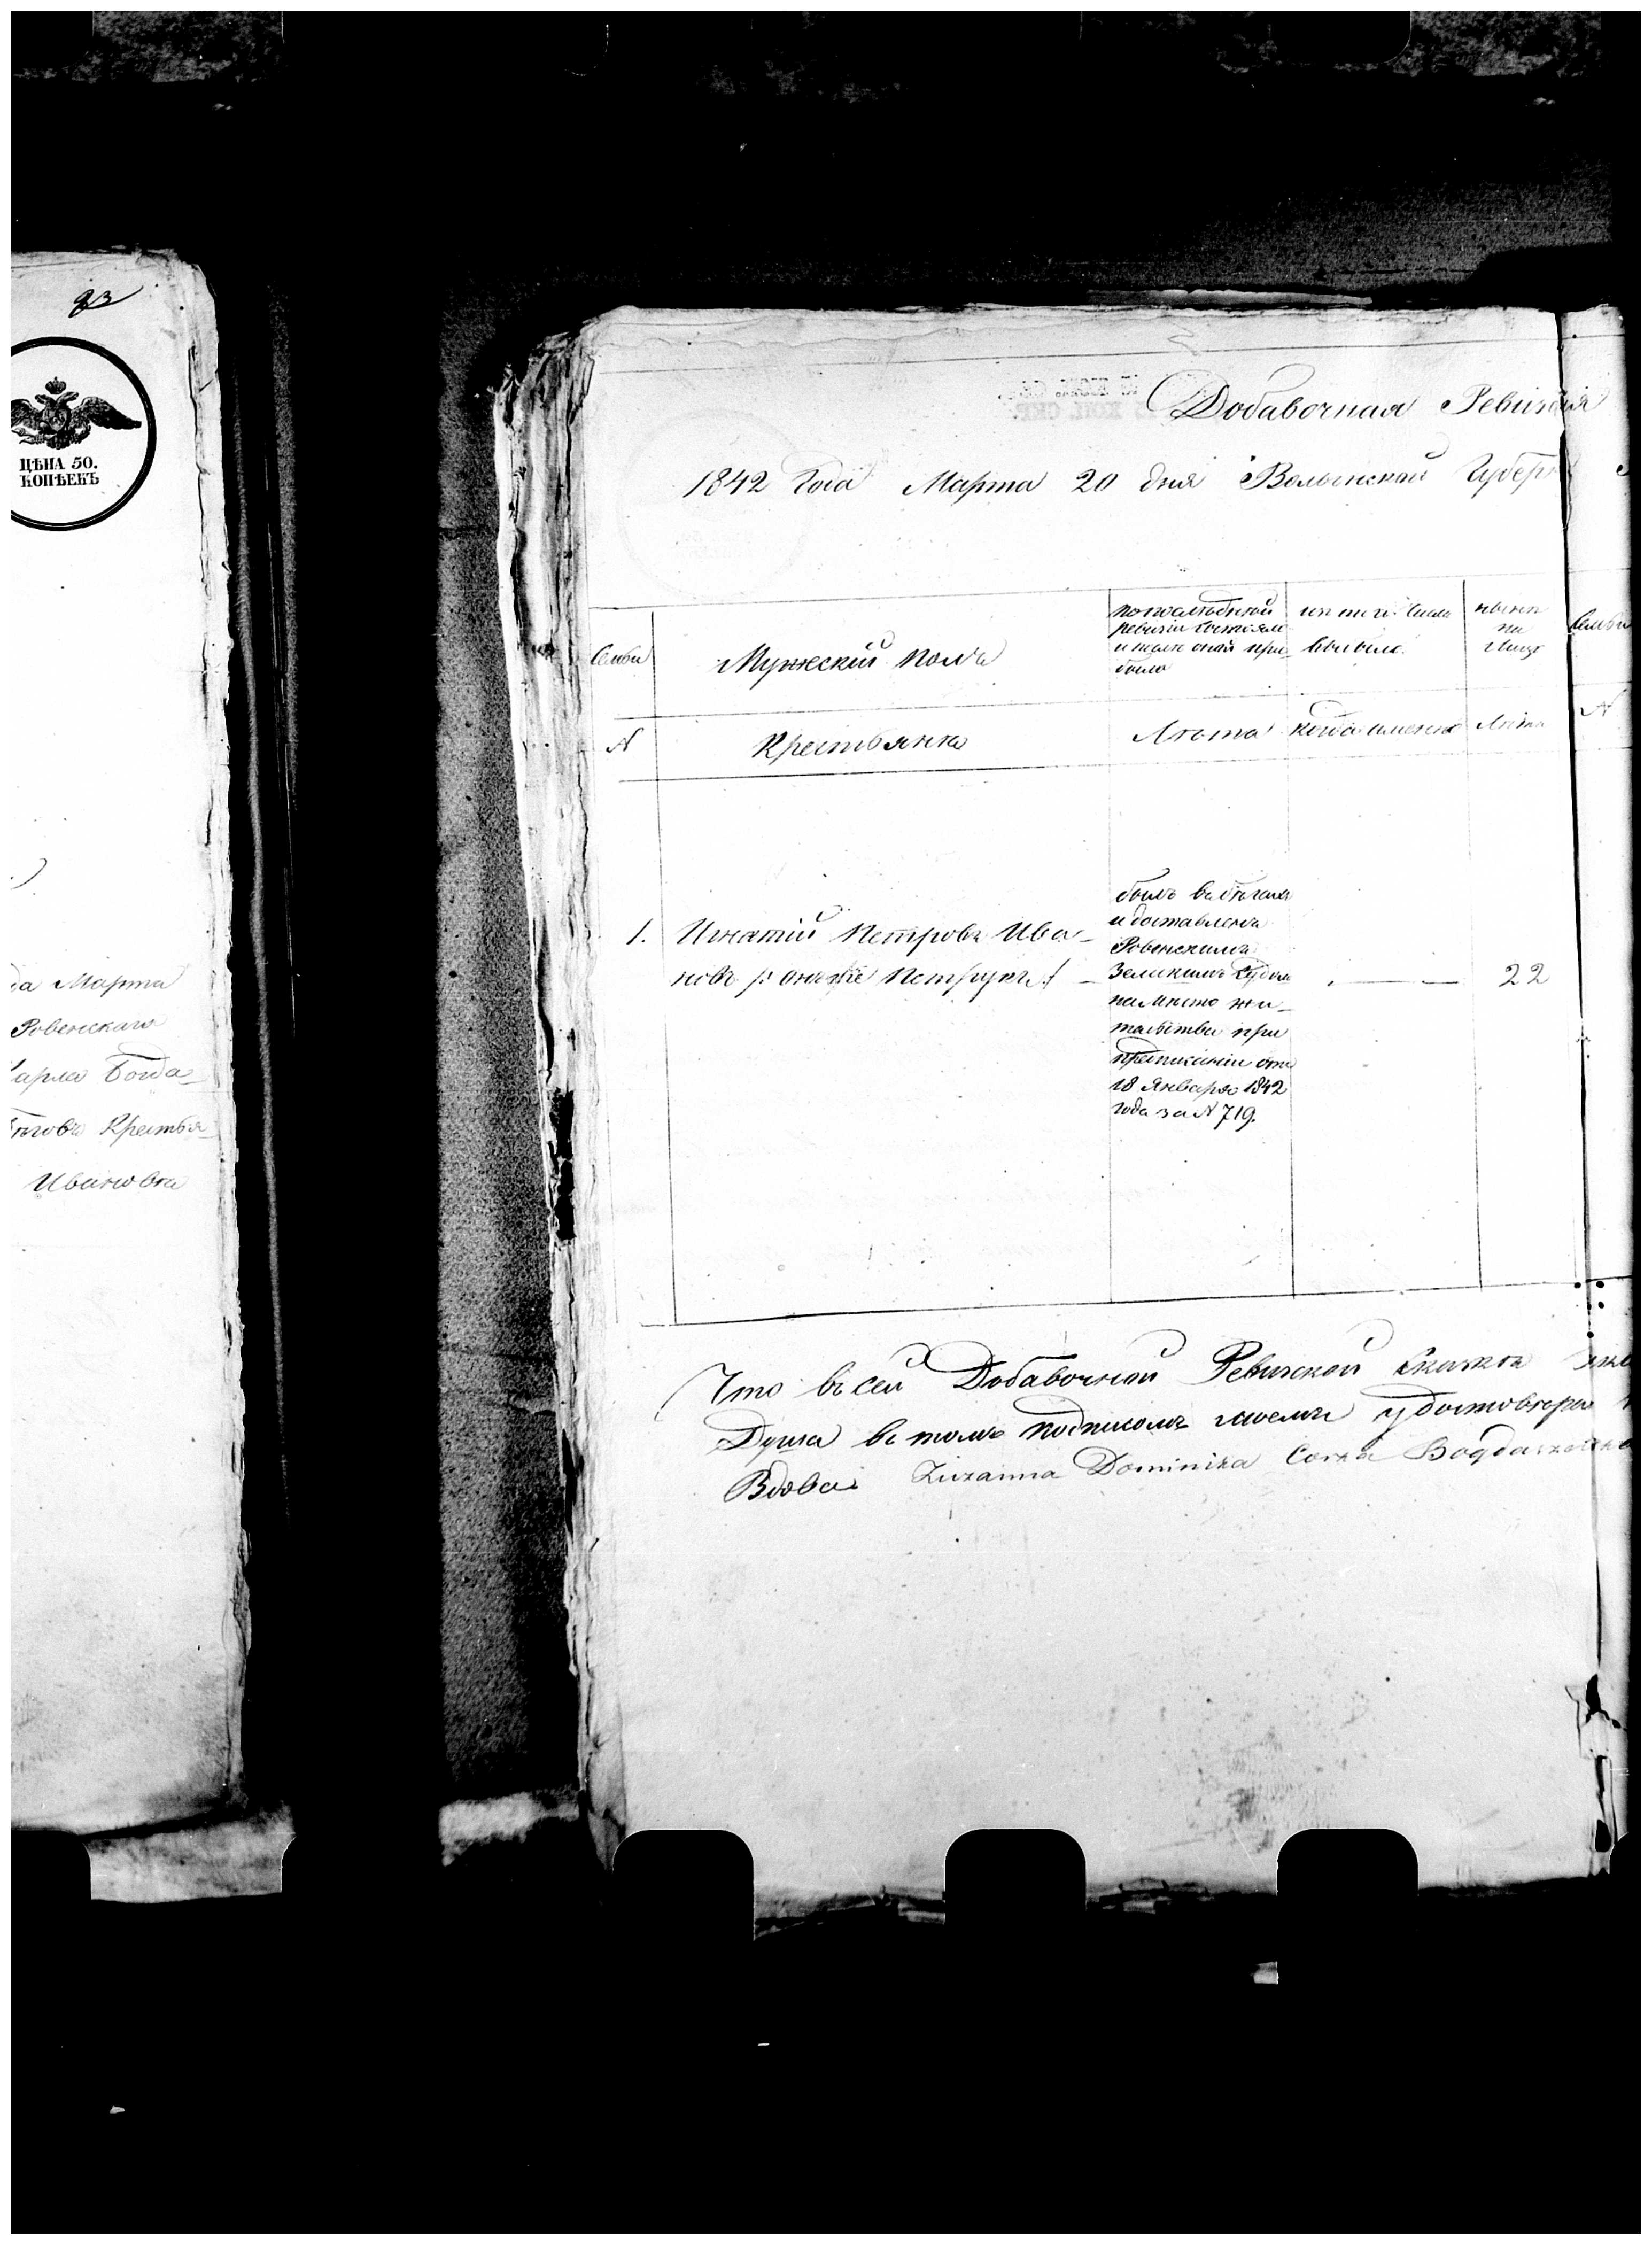 93
ЦѢНА 50.
КОПѢЕКЪ
да Марта
Ровенскаго
Карла Богда-
Крестья-
Ивановка
Добавочная Ревизкая
1842 Года Марта 20 дня Волынской Губер
Семьи
Мужескій полъ
по последней
ревизіи состояло
и после оной при-
было
изъ того числа
выбыло.
ныне
на
лицо
Семьи
№
Крестьяне
Лета
когда именно
Лета
№
1. Игнатій Петровъ Ива-
новъ /: онъ же Петрукъ :/
былъ въ бегахъ
и доставленъ
Ровенскимъ
Земскимъ Судомъ
на место жи-
тельства при
предписаніи отъ
18 Января 1842
года за № 719.
22
Что въ сей Добавочной Ревизской Сказке
Душа въ томъ подписомъ моемъ удостоверяю
Вдова Zuzanna Dominika Corka